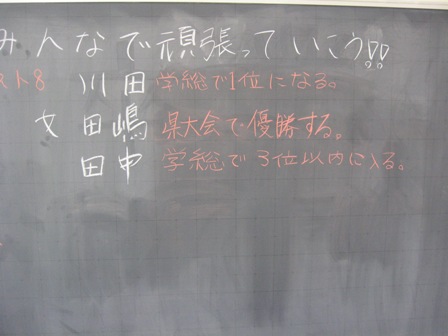 みんなで頑張っていこう!!
スト8 川田 学総で1位になる。
女 田嶋 県大会で優勝する。
田中 学総で3位以内に入る。